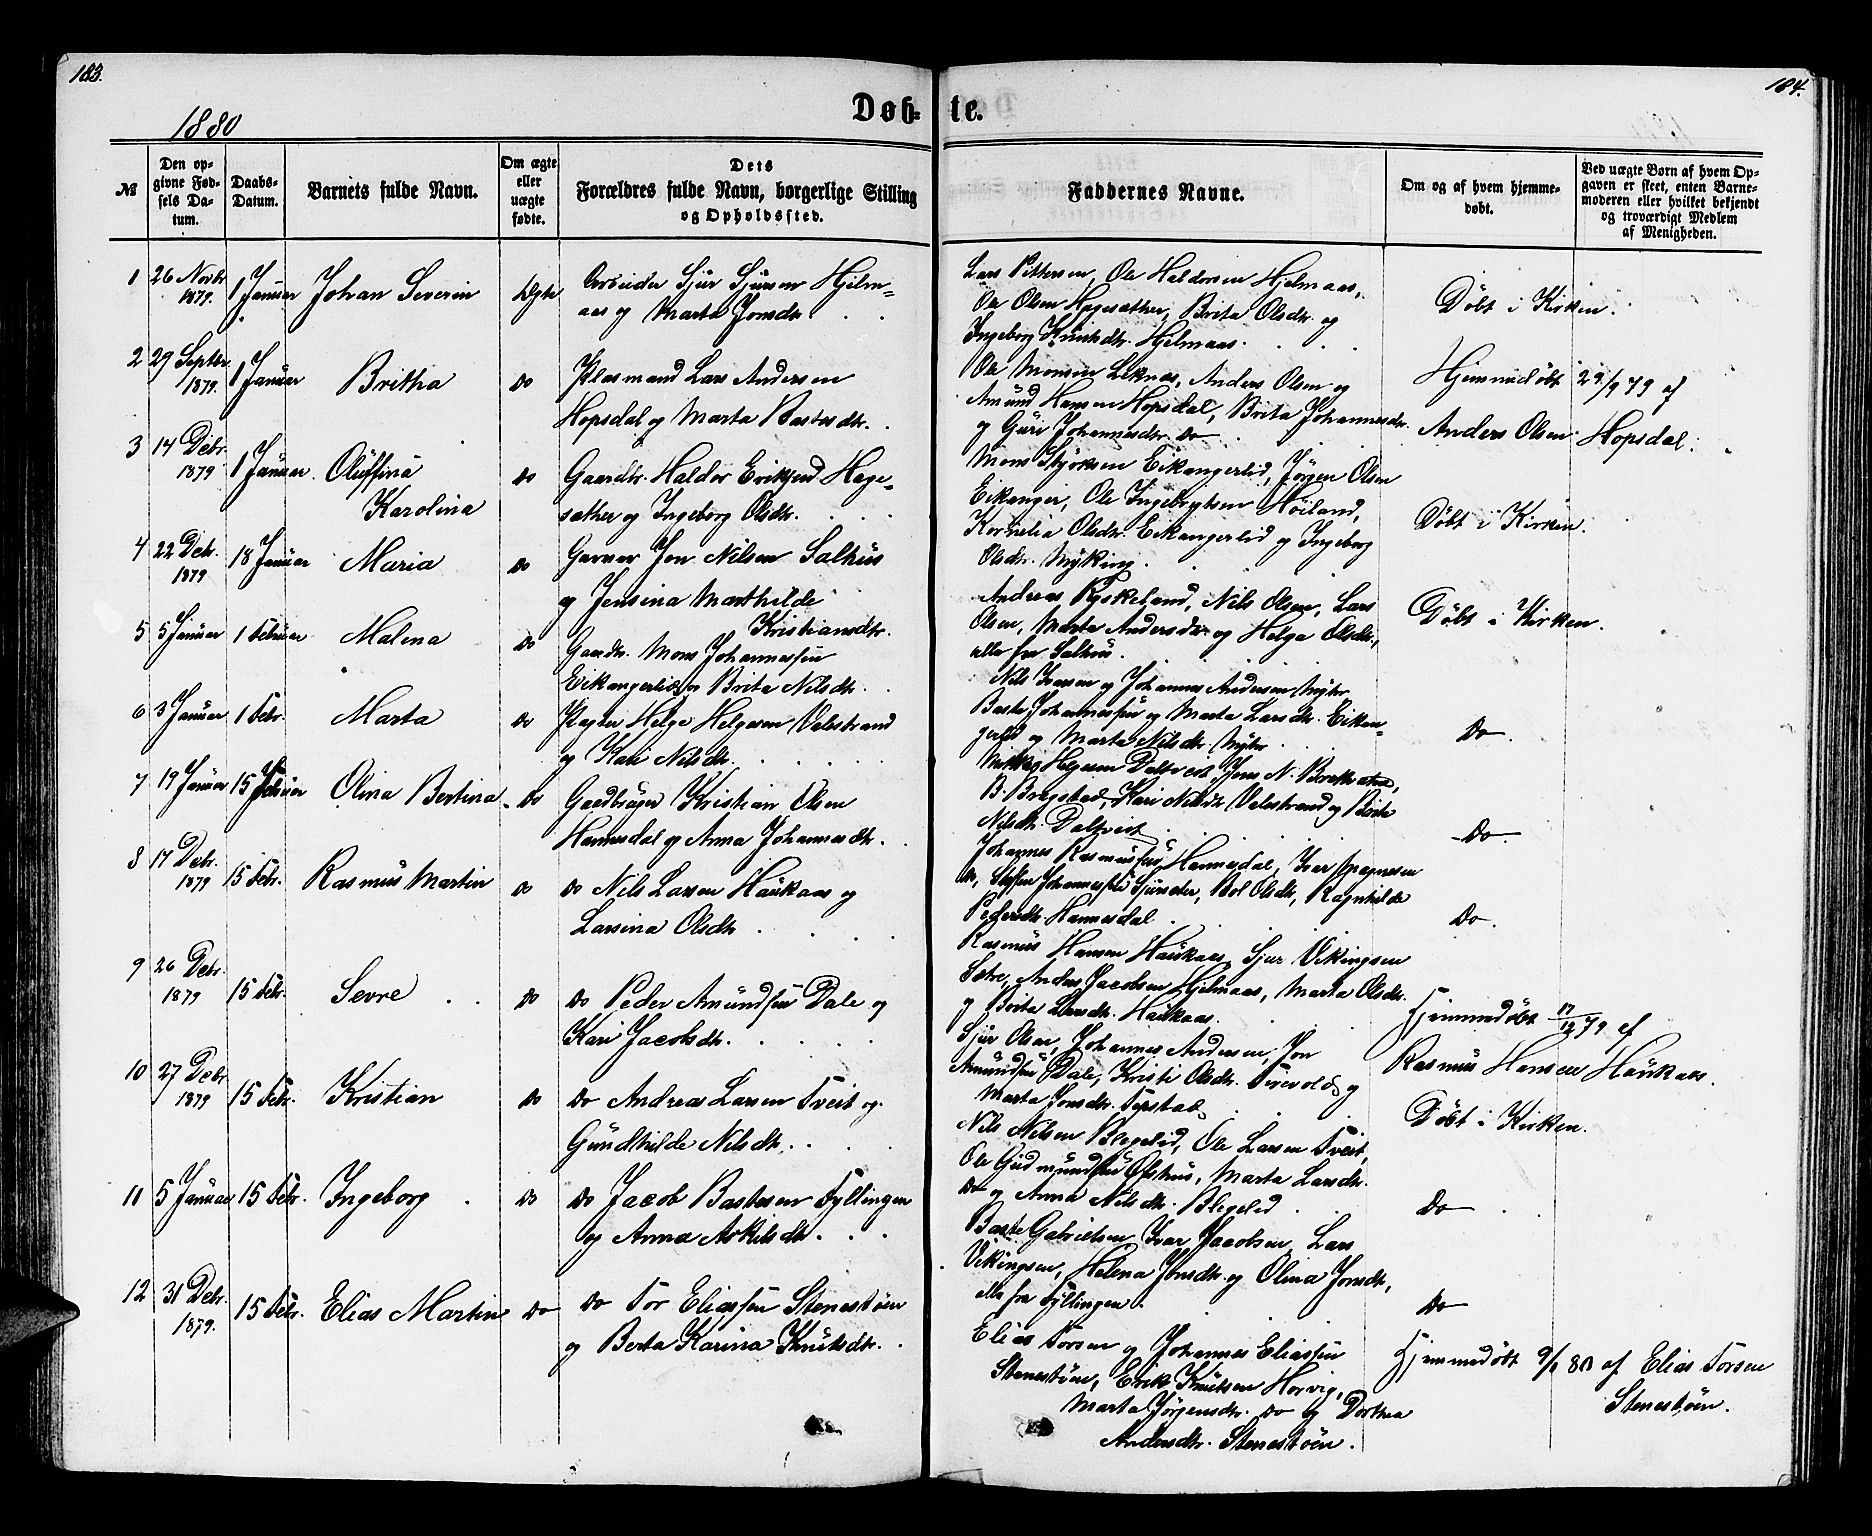 183.
184.
1880
Døb-
te.
№
Den op-
givne Fød-
sels Da-
tum.
Daabs-
Datum.
Barnets fulde Navn.
Om ægte
eller
uægte
fødte.
Dets
Forældres fulde Navn, borgerlige Stilling
og Opholdssted.
Faddernes Navne.
Om og af hvem hjemme-
døbt.
Ved uægte Børn af hvem Op-
gaven er skeet, enten Barne-
moderen eller hvilket bekjendt
og troværdigt Medlem
af Menigheden.
1
26 Novbr
1879.
1 Januar
Johan Severin
Ægte
Arbeider Sjur Sjursen Hjelm=
aas og Marta Jonsdtr.
Lars Pettersen, Ole Haldorsen Hjelmaas,
Ole Olsen Hopesæther, Brita Olsdtr. og
Ingeborg Knutsdtr. Hjelmaas.
Døbt i Kirken.
2
29 Septbr.
1879.
1 Januar
Britha
do
Plasmand Lars Andersen
Hopsdal og Marta Bastesdtr.
Ole Monsen Leknes, Anders Olsen og
Amund Hansen Hopsdal, Brita Johannesdr.
og Guri Johannesdtr. do
Hjemmedøbt 29/9 79 af
Anders Olsen Hopsdal.
3
14 Debr.
1879
1 Januar.
Oluffina
Karolina
do
Gaardbr. Haldor Eriksen Hage=
sæther og Ingeborg Olsdtr.
Mons Eikangerlid, Jørgen Olsen
Eikanger, Ole Ingebrigtsen Høiland,
Kornelia Olsdtr. Eikangerlid og Ingeborg
Olsdtr. Myking.
Døbt i Kirken.
4
22 Debr.
1879
18 Januar
Maria
do
Garver Jon Nilsen Salhus
og Jensina Marthilde
Kristiansdtr.
Andreas Kyskeland, Nils Olsen, Lars
Olsen, Marta Andersdr. og Helga Olsdtr.,
alle fra Salhus.
Døbt i Kirken.
5
5 Januar
1 Februar
Malena
do
Gaardbr. Mons Johannessen
Eikangerlid og Brita Nilsdtr.
Nils Ivarsen og Johannes Andersen Myhr,
Baste Johannessen og Marta Larsdtr. Eikan=
gerlid og Marta Nilsdtr. Myhr.
Do.
6
3 Januar
1 Febr.
Marta
do
Helge Helgesen Valestrand
og Kari Nilsdtr.
Helgesen Daltveit, Jens N.
B. Bregstad, Kari Nilsdtr. Valestrand og Brita
Nilsdtr. Daltveit
Do.
7
19 Januar
15 Februar
Olina Bertina
do
Gaardbruger Kristian Olsen
Hannesdal og Anna Johannesdtr.
Johannes Rasmussen Hannesdal, Ivar Magnesen
do, Steffen Johannessen, Bol Olsdtr., Ragnhilde
Pedersdtr. Hannesdal.
Do.
8
17 Debr.
1879
15 Febr.
Rasmus Martin
do
do Nils Larsen Haukaas og
Larsina Olsdtr.
Rasmus Hansen Haukaas, Sjur Vikingsen
Sætre, Anders Jacobsen Hjelmaas, Marta Olsdtr.
og Brita Larsdtr. Haukaas.
Hjemmedøbt 17/12 79 af
Rasmus Hansen Haukaas.
9
26 Debr.
1879
15 Febr.
Sevre
do
do Peder Amundsen Dale og
Kari Jacobsdtr.
Sjur Olsen, Johannes Andersen, Jon
Amundsen Dale, Kristi Olsdtr. og
Marta Jonsdtr.
Døbt i Kirken.
10
27 Debr
1879
15 Febr.
Kristian
do
do Andreas Larsen Tveit og
Gundhilde Nilsdtr.
Nils Nilsen Blegelid, Ole Larsen Tveit,
Ole Gudmundsen Ofsthus, Marta Larsdtr.
do og Anna Nilsdtr. Blegelid
Do
11
5 Januar
15 Febr.
Ingeborg
do
do Jacob Bastesen Fyllingen
og Anna Askildsdtr.
Baste Gabrielsen, Ivar Jacobsen, Lars
Vikingsen, Helena Jonsdtr. og Olina Jonsdtr,
alle fra Fyllingen.
Do
12
31 Debr.
1879.
15 Febr.
Elias Martin
do
do Tor Eliassen Stenestøen
og Berta Karina Knutsdtr.
Elias Torsen og Johannes Eliassen
Stenestøen, Erik Knutsen Horvig,
Marta Jørgensdtr. do og Dorthea
Andersdtr. Stenestøen.
Hjemmedøbt 9/1 80 af Elias Torsen
Stenestøen.